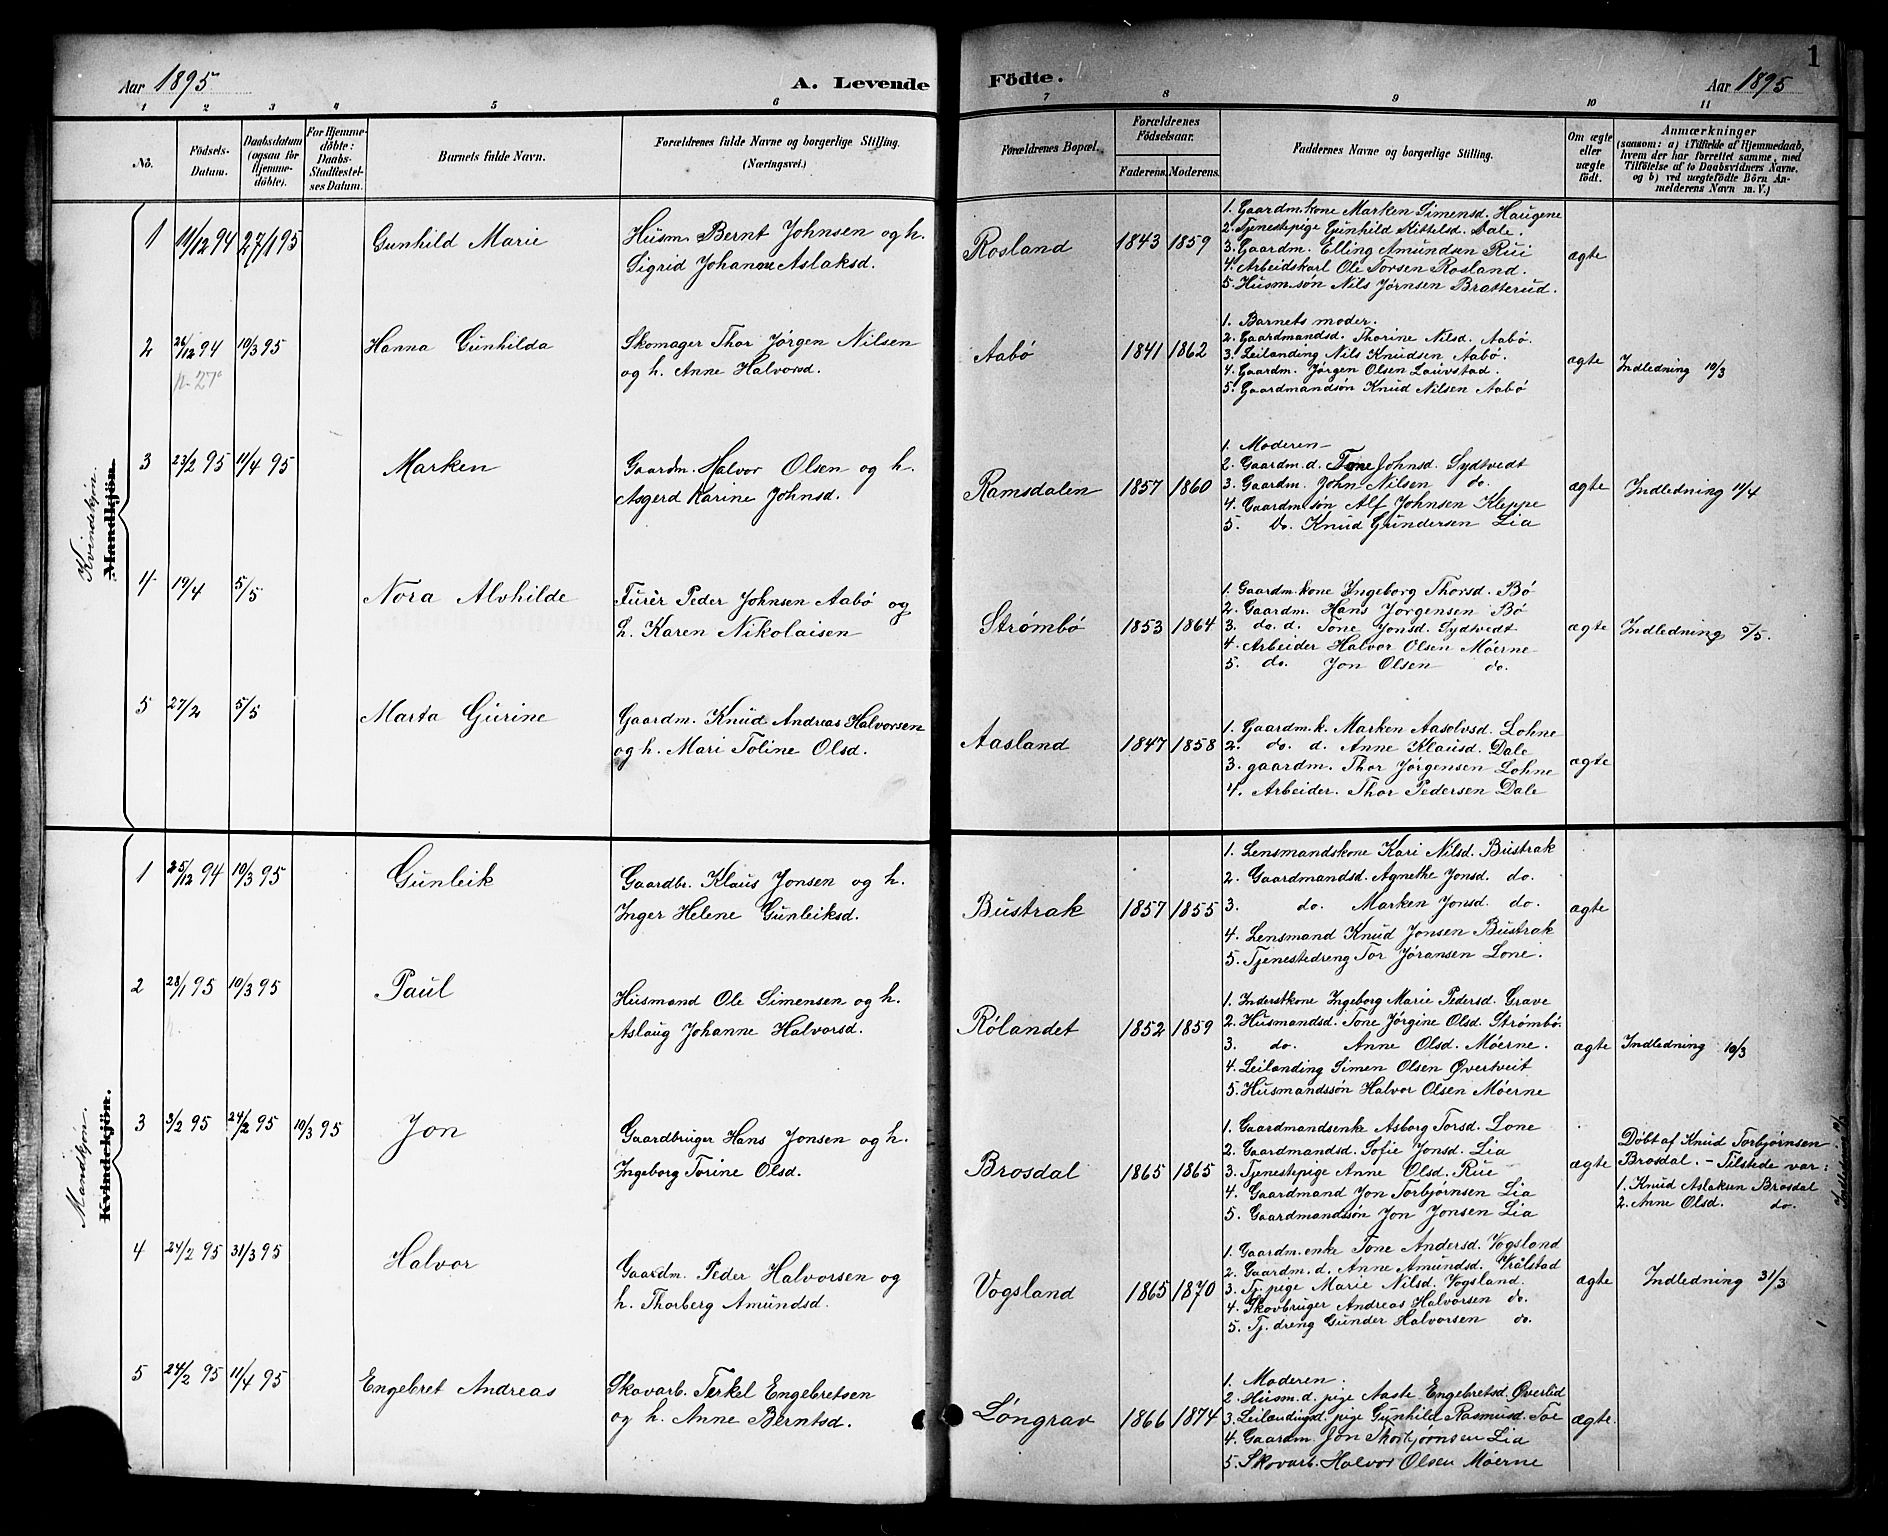 1
Aar 1895
A. Levende Födte.
Aar 1895
1 2 3 4 5 6 7 8 9 10 11
No.
Födsels-Datum.
Daabsdatum (ogsaa for Hjemmedöbte).
For Hjemmedöbte: Daabs-Stadfæstelses Datum.
Barnets fulde Navn.
Forældrenes fulde Navne og borgerlige Stilling. (Næringsvei.)
Forældrenes Bopæl.
Forældrenes Födselsaar.
Faderens. Moderens.
Faddernes Navne og borgerlige Stilling.
Om ægte eller uægte födt.
Anmærkninger
(saasom: a) i Tilfælde af Hjemmedaab,
hvem der har forrettet samme, med
Tilföielse af to Daabsvidners Navne,
og b) ved uægtefödte Börn Anmelderens Navn m. V.)
Kvindekjön.
Mandkjön.
1 11/12 94 27/1 95 Gunhild Marie
Husm. Bernt Johnsen og h.
Sigrid Johanne Aslaksd.
Rosland 1843 1859
1. Gaardm.kone Marken Simensd. Haugene
2. Tjenestepige Gunhild Kittelsd. Dale.
3. Gaardm. Elling Amundsen Rui
4. Arbeidskarl Ole Torsen Rosland.
5. Husm.søn Nils Jørnsen Bratterud.
ægte
2 26/12 94 10/3 95 Hanna Gunhilda
Skomager Thor Jørgen Nilsen
og h. Anne Halvorsd.
Aabø 1841 1862
1. Barnets moder.
2. Gaardmandsd. Thorine Nilsd. Aabø.
3. Leilanding Nils Knudsen Aabø.
4. Gaardm. Jørgen Olsen Lauvstad.
5. Gaardmandsøn Knud Nilsen Aabø
ægte Indledning 10/3
3 23/2 95 11/4 95 Marken
Gaardm. Halvor Olsen og h.
Asgerd Karine Johnsd.
Ramsdalen 1857 1860
1. Moderen
2. Gaardm. d. Tone Johnsd. Sydtvedt
3. Gaardm. John Nilsen do.
4. Gaardm.søn Alf Johnsen Kleppe
5. Do. Knud Gundersen Lia
ægte Indledning 11/4
4 19/4 5/5 Nora Alvhilde
Furér Peder Johnsen Aabø og
h. Karen Nikolaisen
Strømbø 1853 1864
1. Gaardm.kone Ingeborg Thorsd. Bø
2. Gaardm. Hans Jørgensen Bø
3. do. d. Tone Jonsd. Sydtvedt
4. Arbeider Halvor Olsen Móerne
5. do. Jon Olsen do.
ægte Indledning 5/5.
5 27/2 5/5 Marta Gurine
Gaardm. Knud Andreas Halvorsen
og h. Mari Toline Olsd.
Aasland 1847 1858
1. Gaardm.k. Marken Aasolvsd. Lohne
2. do. d. Anne Klausd. Dale
3. gaardm. Thor Jørgensen Lohne
4. Arbeider. Thor Pedersen Dale
ægte
Mandkjøn.
Kvindekjön.
1 25/12 94 10/3 95 Gunleik
Gaardbr. Klaus Jonsen og h.
Inger Helene Gunleiksd.
Bustrak 1857 1855
1. Lensmandskone Kari Nilsd. Bustrak
2. Gaardmandsd. Agnethe Jonsd. do.
3. do. Marken Jonsd. do.
4. Lensmand Knud Jonsen Bustrak
5. Tjenestedreng Tor Jøransen Lone.
ægte
2 28/1 95 10/3 95 Paul
Husmand Ole Simensen og h.
Aslaug Johanne Halvorsd.
Rólandet 1852 1859
1. Inderstkone Ingeborg Marie Pedersd. Grave
2. Husmandsd. Tone Jørgine Olsd. Strømbø.
3. do. Anne Olsd. Móerne.
4. Leilanding Simen Olsen Øvertveit
5. Husmandssøn Halvor Olsen Móerne
ægte Indledning 10/3
3 3/2 95 24/2 95 10/3 95 Jon
Gaardbruger Hans Jonsen og h.
Ingeborg Torine Olsd.
Brosdal 1865 1865
1. Gaardmandsenke Asborg Torsd. Lone
2. Gaardmandsd. Sofie Jonsd. Lia
3. Tjenestepige Anne Olsd. Rui
4. Gaardmand Jon Torbjørnsen Lia
5. Gaardmandssøn Jon Jonsen Lia
ægte
Døbt af Knud Torbjørnsen
Brosdal. – Tilstede var:
1. Knud Aslaksen Brosdal
2. Anne Olsd. do.
Indledning 10/3
4 24/2 95 31/3 95 Halvor
Gaardm. Peder Halvorsen og
h. Thorberg Amundsd.
Vogsland 1865 1870
1. Gaardm.enke Tone Andersd. Vogsland
2. Gaardm. d. Anne Amundsd. Vraalstad
3. Tj. pige Marie Nilsd. Vogsland.
4. Skovbruger Andreas Halvorsen do.
5. Tj. dreng Gunder Halvorsen do.
ægte Indledning 31/3
5 24/2 95 11/4 95 Engebret Andreas
Skovarb. Terkel Engebretsen
og h. Anne Berntsd.
Lóngrav 1866 1874
1. Moderen.
2. Husm.d. pige Aaste Engebretsd. Øverlid
3. Leilandingsd. pige Gunhild Rasmusd. Toe
4. Gaardm. Jon Thorbjørnsen Lia
5. Skovarb. Halvor Olsen Móerne
ægte.